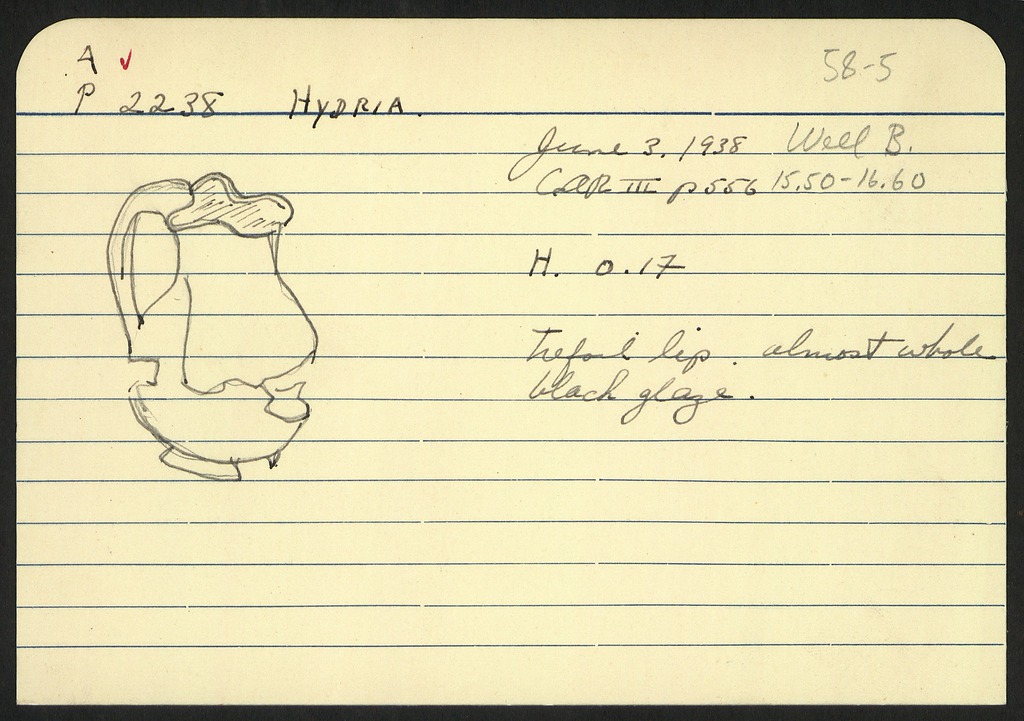 A ✓ 58-5
P 2238 HYDRIA.
June 3. 1938 Well B.
III p 556 15.50-16.60
H. 0.17
Trefoil lip. almost whole
black glaze.